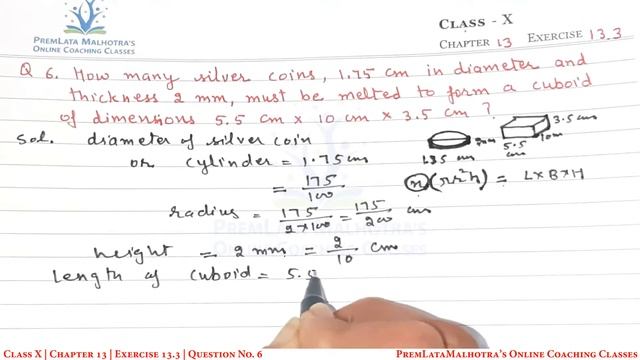 PREMLATA MALHOTRA'S
ONLINE COACHING CLASSES
CLASS - X
CHAPTER 13 EXERCISE 13.3
Q 6. How many silver coins, 1.75 cm in diameter and
thickness 2 mm, must be melted to form a cuboid
of dimensions 5.5 cm x 10 cm x 3.5 cm ?
Sol. diameter of silver coin
or cylinder = 1.75 cm
= 175/100
radius = 175/2x100 = 175/200 cm
height = 2 mm = 2/10 cm
Length of cuboid = 5.5
3.5 cm
10 cm
5.5 cm
2mm
n(πr²h) = L x B x H
Class X | Chapter 13 | Exercise 13.3 | Question No. 6
PremLataMalhotra's Online Coaching Classes